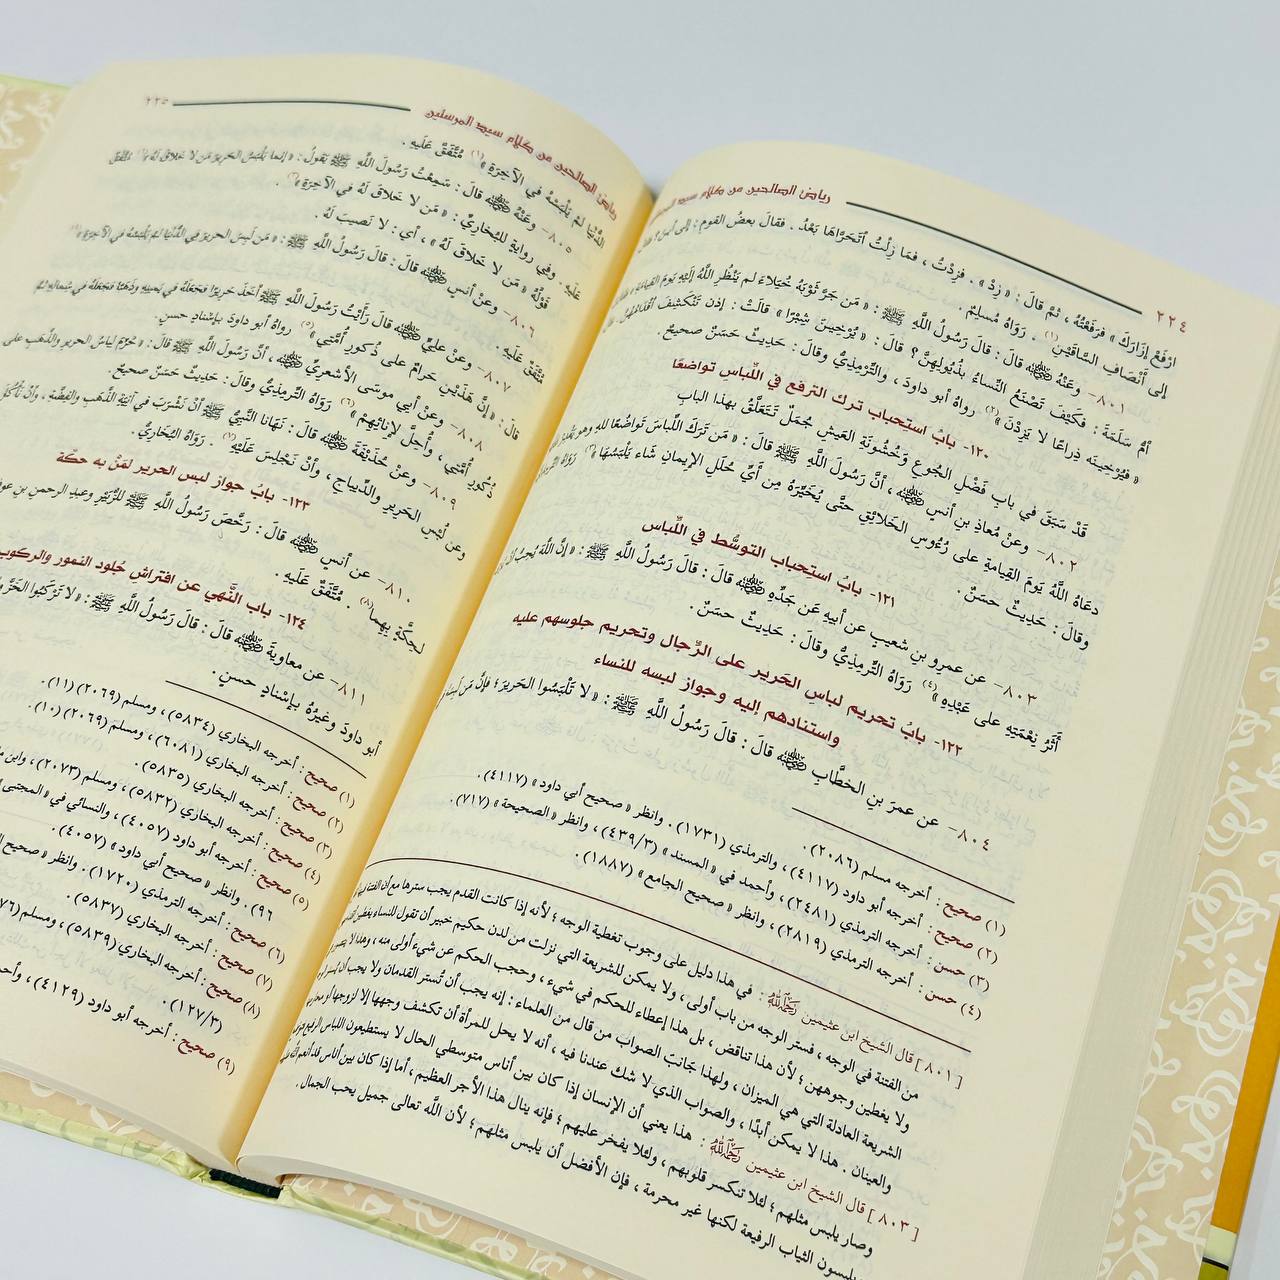 ٢٢٤
رياض الصالحين من كلام سيد
ارْفَعْ إزَارَكَ» فرَفَعْتُهُ، ثمَّ قالَ: «زِدْ»، فزِدْتُ، فمَا زِلْتُ أتَحَرَّاهَا بَعْدُ. فقالَ بعضُ القوم: إلى أينَ؟
إلى أنْصَافِ السَّاقَيْنِ(١). رَوَاهُ مُسلِمٌ.
٨٠١- وعَنْهُ قالَ: قالَ رَسُولُ اللَّهِ ﷺ: «مَن جَرَّ ثَوْبَهُ خُيَلاءَ لم يَنْظُرِ اللَّهُ إلَيْهِ يَوْمَ القِيامَةِ»
أُمُّ سَلَمَةَ: فكَيفَ تَصْنَعُ النِّساءُ بذُيُولِهِنَّ؟ قالَ: «يُرْخِينَ شِبْرًا» قالَتْ: إذن تَنْكَشِفَ أقْدَامُهُنَّ.
«فيُرْخِينَه ذِراعًا لا يَزِدْنَ»(٢) رواهُ أبو داودَ، والتِّرْمِذِيُّ وقالَ: حَدِيثٌ حَسَنٌ صحيحٌ.
١٢٠- بابُ استحباب ترك الترفع في اللِّباسِ تواضعًا
قَدْ سَبَقَ في بابِ فَضْلِ الجُوعِ وَخُشُونَةِ العَيشِ جُمَلٌ تَتَعَلَّقُ بهذا البابِ
٨٠٢- وعنْ مُعاذِ بنِ أنسٍ، أنَّ رَسولَ اللَّهِ ﷺ قالَ: «مَن تَرَكَ اللِّباسَ تَوَاضُعًا للهِ وهو يَقْدِرُ
دعَاهُ اللَّهُ يَومَ القِيامَةِ على رُءُوسِ الخَلائِقِ حتَّى يُخَيِّرَهُ مِن أيِّ حُلَلِ الإيمانِ شَاء يَلْبَسُهَا»(٣) رَوَاهُ
وقالَ: حَدِيثٌ حَسَنٌ.
١٢١- بابُ استِحباب التوسُّط في اللِّباس
٨٠٣- عن عمرِو بنِ شعيبٍ عن أبيهِ عَن جَدِّهِ قالَ: قالَ رَسُولُ اللَّهِ ﷺ: «إنَّ اللهَ يُحِبُّ
أثَرُ نِعْمَتِهِ على عَبْدِهِ»(٤) رَوَاهُ التِّرمِذيُّ وقالَ: حَدِيثٌ حَسَنٌ.
١٢٢- بابُ تحريم لباسِ الحَرير على الرِّجال وتحريم جلوسهم عليه
واستنادهم إليه وجواز لبسه للنساء
٨٠٤- عن عمرَ بنِ الخطَّابِ قالَ: قالَ رَسُولُ اللَّهِ ﷺ: «لا تَلْبَسُوا الحَريرَ؛ فإنَّ مَن لَبِسَهُ
(١) صحيح: أخرجه مسلم (٢٠٨٦).
(٢) صحيح: أخرجه أبو داود (٤١١٧)، والترمذي (١٧٣١). وانظر «صحيح أبي داود» (٤١١٧).
(٣) حسن: أخرجه الترمذي (٢٤٨١)، وأحمد في «المسند» (٤٣٩/٣)، وانظر «الصحيحة» (٧١٧).
(٤) حسن: أخرجه الترمذي (٢٨١٩)، وانظر «صحيح الجامع» (١٨٨٧).
[٨٠١] قال الشيخ ابن عثيمين: في هذا دليل على وجوب تغطية الوجه؛ لأنه إذا كانت القدم يجب سترها مع أن الفتنة
من الفتنة في الوجه، فستر الوجه من باب أولى، ولا يمكن للشريعة التي نزلت من لدن حكيم خبير أن تقول للنساء يغطين
ولا يغطين وجوههن؛ لأن هذا تناقض، بل هذا إعطاء للحكم في شيء، وحجب الحكم عن شيء أولى منه، وهذا لا
الشريعة العادلة التي هي الميزان، ولهذا جَانَبَ الصواب من قال من العلماء: إنه يجب أن تُستر القدمان ولا يجب أن
والعينان. هذا لا يمكن أبدًا، والصواب الذي لا شك عندنا فيه، أنه لا يحل للمرأة أن تكشف وجهها إلا لزوجها أو محارمها
[٨٠٣] قال الشيخ ابن عثيمين: هذا يعني أن الإنسان إذا كان بين أناس متوسطي الحال لا يستطيعون اللباس الرفيع
وصار يلبس مثلهم؛ لئلا تنكسر قلوبهم، ولئلا يفخر عليهم؛ فإنه ينال هذا الأجر العظيم، أما إذا كان بين أناس قد أنعم الله
يلبسون الثياب الرفيعة لكنها غير محرمة، فإن الأفضل أن يلبس مثلهم؛ لأن الله تعالى جميل يحب الجمال.
رياض الصالحين من كلام سيد المرسلين
٢٢٥
الدُّنْيا لمْ يَلْبَسْهُ في الآخِرَةِ»(١) مُتَّفَقٌ عَلَيهِ.
٨٠٥- وعَنْهُ قالَ: سَمِعْتُ رَسُولَ اللَّهِ ﷺ يَقُولُ: «إنما يَلْبَسُ الحَرِيرَ مَن لا خَلاقَ لهُ»(٢) مُتَّفَقٌ
عَلَيهِ. وفي روايةٍ للبُخاريِّ: «مَن لا خَلاقَ لَهُ في الآخِرَةِ»(٣).
قَوْلُهُ: «مَن لا خَلاقَ لَهُ»، أي: لا نَصيبَ لَهُ.
٨٠٦- وعنْ أنسٍ قالَ: قالَ رَسُولُ اللَّهِ ﷺ: «مَن لَبِسَ الحريرَ في الدُّنْيا لمْ يَلْبَسْهُ في الآخِرَةِ»
مُتَّفَقٌ عَلَيهِ.
٨٠٧- وعنْ عليٍّ قالَ رَأيْتُ رَسُولَ اللَّهِ ﷺ أخَذَ حَرِيرًا فَجَعَلَهُ في يَمِينِهِ وذَهَبًا فَجَعَلَهُ في شِمالِهِ ثُمَّ
قالَ: «إنَّ هَذَيْنِ حَرَامٌ على ذُكورِ أُمَّتي»(٥) رواهُ أبو داودَ بإسْنادٍ حسنٍ.
٨٠٨- وعنْ أبي موسَى الأشعريِّ، أنَّ رَسُولَ اللَّهِ ﷺ قالَ: «حُرِّمَ لِباسُ الحرِيرِ والذَّهَبِ على
ذُكورِ أُمَّتي، وأُحِلَّ لإناثِهِمْ»(٦) رَوَاهُ التِّرمِذِيُّ وقالَ: حَدِيثٌ حَسَنٌ صحيحٌ.
٨٠٩- وعنْ حُذَيْفَةَ قالَ: نَهَانا النَّبيُّ ﷺ أنْ نَشْرَبَ في آنِيَةِ الذَّهَبِ والفِضَّةِ، وأنْ نَأكُلَ
وعن لُبْسِ الحَرِيرِ والدِّيباجِ، وأنْ نَجْلِسَ عَلَيْهِ(٧). رَوَاهُ البُخَارِيُّ.
١٢٣- بابُ جواز لبس الحرير لمَنْ به حكّة
٨١٠- عن أنسٍ قالَ: رَخَّصَ رَسُولُ اللَّهِ ﷺ للزُّبَيْرِ وعبدِ الرحمنِ بنِ
لِحِكَّةٍ بِهِما(٨). مُتَّفَقٌ عَلَيهِ.
١٢٤- باب النَّهي عن افتراشِ جُلود النمور والركوب
٨١١- عن معاويةَ قالَ: قالَ رَسُولُ اللَّهِ ﷺ: «لا تَرْكَبُوا الخَزَّ
أبو داودَ وغيرُهُ بإسْنادٍ حسنٍ.
(١) صحيح: أخرجه البخاري (٥٨٣٤)، ومسلم (٢٠٦٩) (١١).
(٢) صحيح: أخرجه البخاري (٦٠٨١)، ومسلم (٢٠٦٩) (١٠).
(٣) صحيح: أخرجه البخاري (٥٨٣٥).
(٤) صحيح: أخرجه البخاري (٥٨٣٢)، ومسلم (٢٠٧٣)، وابن
(٥) صحيح: أخرجه أبو داود (٤٠٥٧)، والنسائي في «المجتبى
٩٦). وانظر «صحيح أبي داود» (٤٠٥٧).
(٦) صحيح: أخرجه الترمذي (١٧٢٠). وانظر «صحيح
(٧) صحيح: أخرجه البخاري (٥٨٣٧).
(٨) صحيح: أخرجه البخاري (٥٨٣٩)، ومسلم
(٩) صحيح: أخرجه أبو داود (٤١٢٩)،
(١٢٧/٣).